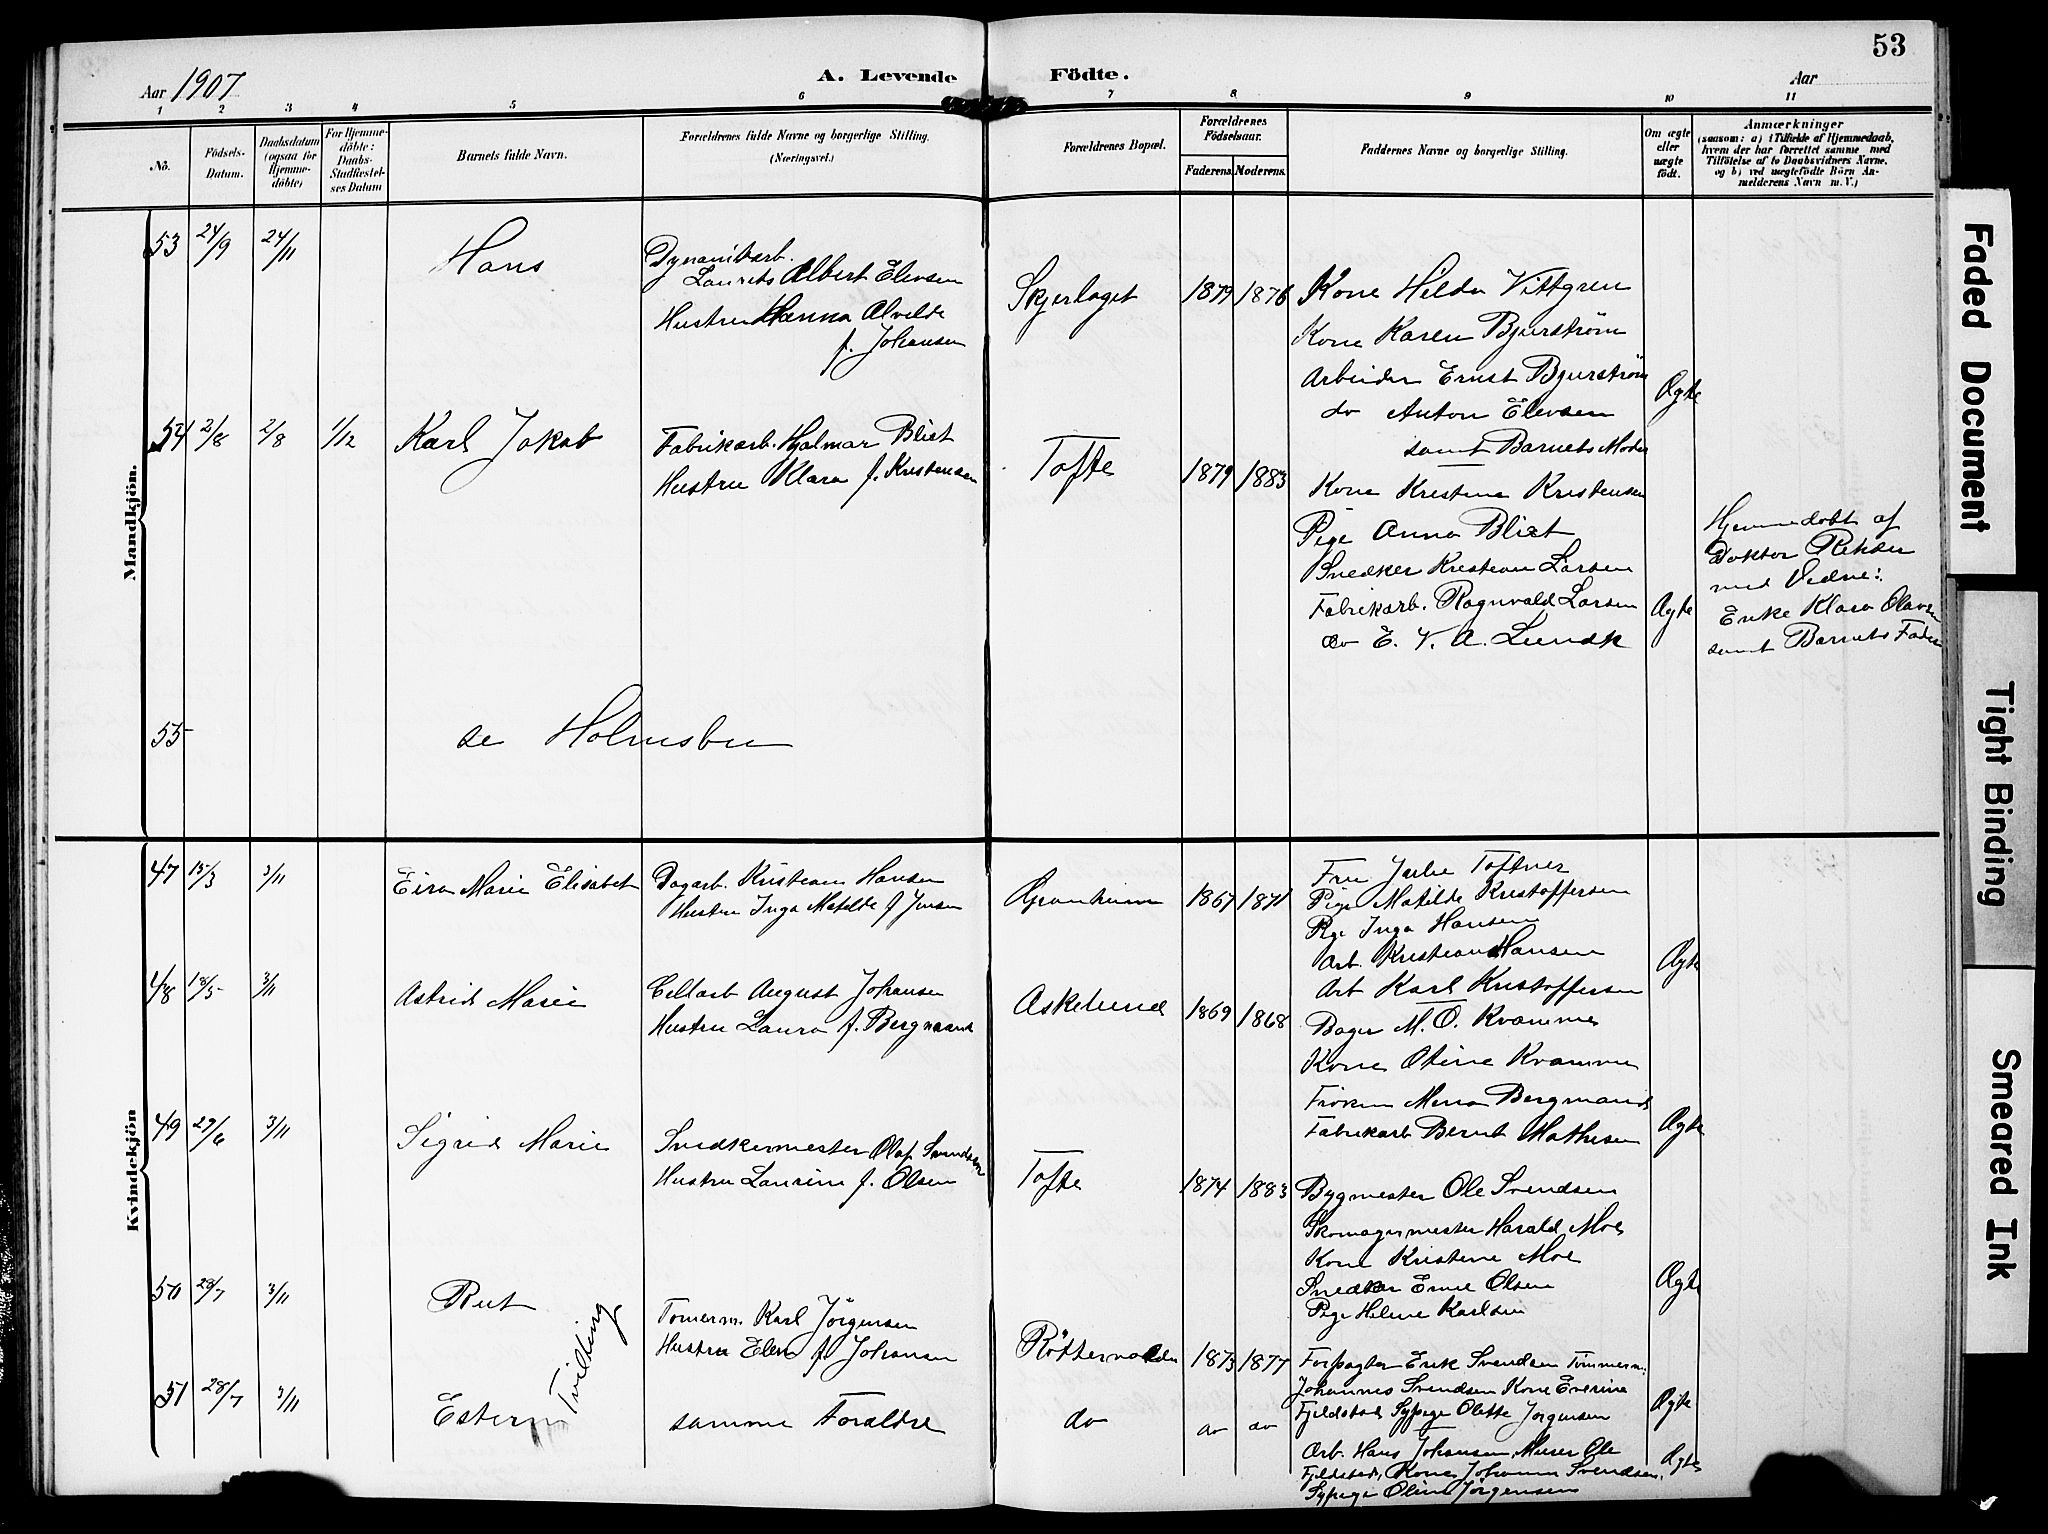 53
Aar 1907
A. Levende Födte.
Aar
1 2 3 4 5 6 7 8 9 10 11
No.
Födsels-Datum.
Daabsdatum (ogsaa for Hjemme-döbte)
For Hjemme-döbte: Daabs-Stadfæstel-ses Datum
Barnets fulde Navn.
Forældrenes fulde Navne og borgerlige Stilling.
(Næringsvei.)
Forældrenes Bopæl.
Forældrenes Födselsaar.
Faderens. Moderens.
Faddernes Navne og borgerlige Stilling.
Om ægte eller uægte födt.
Anmærkninger
(saasom: a) i Tilfælde af Hjemmedaab,
hvem der har forrettet samme med
Tilföielse af to Daabsvidners Navne,
og b) ved uægtefödte Börn An-
melderens Navn m. V.)
Mandkjön.
53 24/9 24/11 Hans
Dynamitarb.
Laurits Albert Elevsen
Hustru Hanna Alvilde
f. Johansen
Skjerlaget 1879 1876
Kone Hilda Vittgren
Kone Karen Bjurström
Arbeider Ernst Bjurström
do Anton Elevsen
samt Barnets Moder
Ægte
54 2/8 2/8 1/12 Karl Jakob
Fabrikarb. Hjalmar Bliet
Hustru Klara f. Kristensen
Tofte 1879 1883
Kone Kristine Kristensen
Pige Anna Bliet
Snedker Kristian Larsen
Fabrikarb. Ragnvald Larsen
do E. V. A. Lundk
Ægte
Hjemmedøbt af
Doktor
med Vidne:
Enke Klara Olavsen
samt Barnets Fader
55 se Holmsbu
Kvindekjön
47 15/3 3/11 Eira Marie Elisabet
Dagarb. Kristian Hansen
Hustru Inga Matilde f. Jensen
Granheim 1867 1871
Fru Julie Toftner
Pige Matilde Kristoffersen
Pige Inga Hansen
Arb. Kristian Hansen
Arb Karl Kristoffersen
Ægte
48 18/5 3/11 Astrid Marie
Cellarb August Johansen
Hustru Laura f. Bergmann
Askelund 1869 1868
Bager M. O. Kvamme
Kone Otine Kvamme
Frøken Bergmand
Fabrikarb Bernt Mathisen
Ægte
49 29/6 3/11 Sigrid Marie
Snedkermester Olaf Svendsen
Hustru Laurine f. Olsen
Tofte 1874 1883
Bygmester Ole Svendsen
Skomagermester Harald Moe
Kone Kristine Moe
Snedker Emil Olsen
Pige Helene Karlsen
Ægte
50 28/7 3/11 Rut
Tvilling
Tømerm. Karl Jørgensen
Hustru Elen f. Johansen
1873 1877
Forpagter Erik Svendsen Tømmerm.
Johannes Svendsen Kone Everine
Fjeldstad Sypige Olette Jørgensen
Ægte
51 28/7 3/11 Ester
samme Forældre
do do do
Arb. Hans Johansen Murer Ole
Fjeldstad, Kone Johanna Svendsen,
Sypige Oline Jørgensen
Ægte
Faded Document
Tight Binding
Smeared Ink